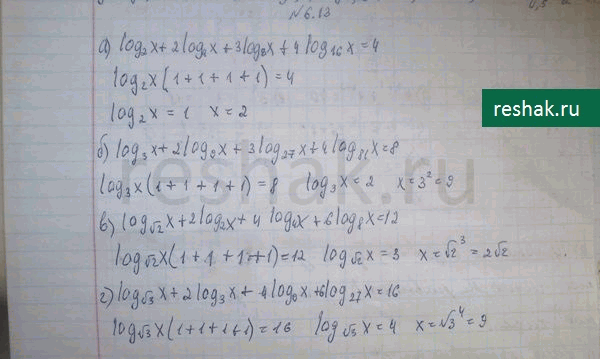 №6.13
а) log₂x+2log₄x+3log₈x+4log₁₆x=4
log₂x(1+1+1+1)=4
log₂x=1 x=2
reshak.ru
б) log₃x+2log₉x+3log₂₇x+4log₈₁x=8
log₃x(1+1+1+1)=8 log₃x=2 x=3²=9
reshak.ru
в) log_√2 x+2log₂x+4log₄x+6log₈x=12
log_√2 x(1+1+1+1)=12 log_√2 x=3 x=√2³=2√2
г) log_√3 x+2log₃x+4log₉x+6log₂₇x=16
log_√3 x(1+1+1+1)=16 log_√3 x=4 x=√3⁴=9